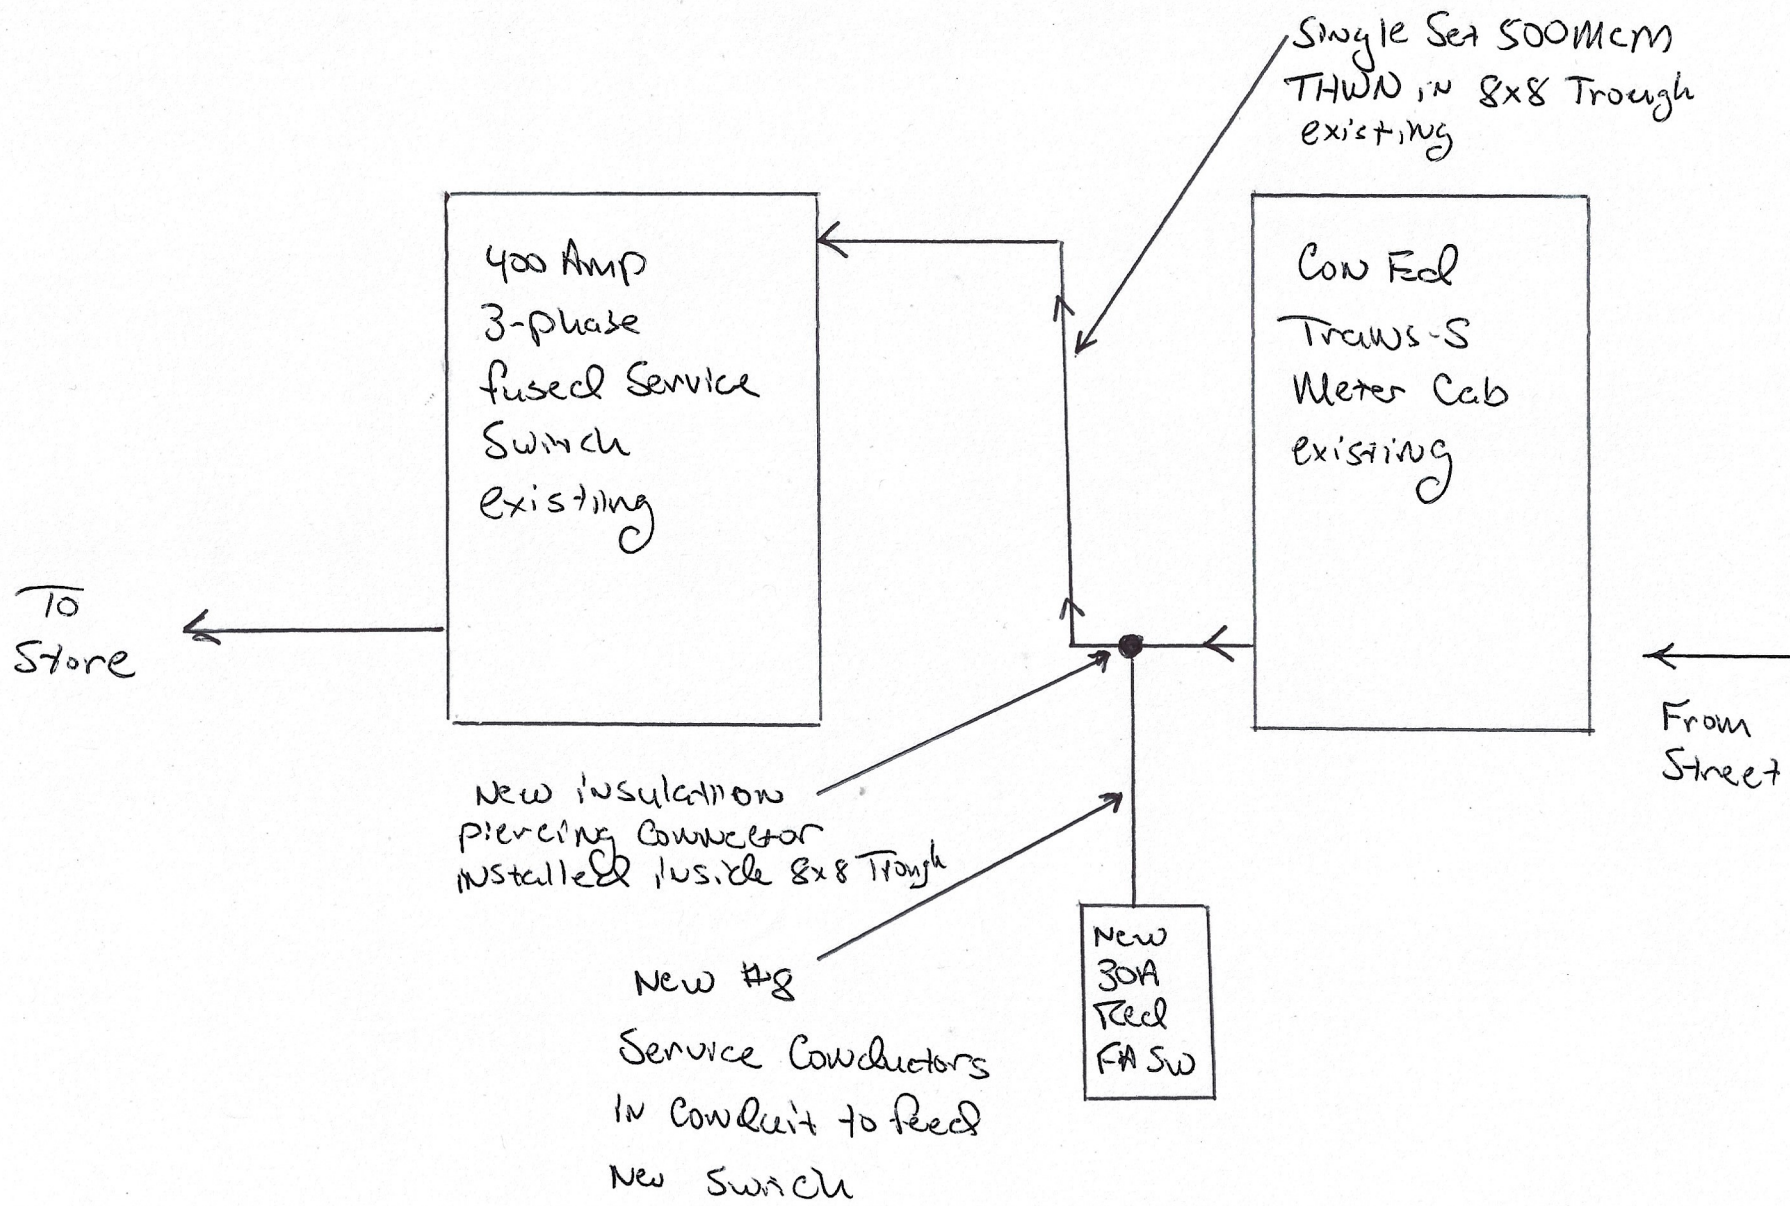 Single Set 500MCM
THWN in 8x8 Trough
existing
400 Amp
3-phase
fused Service
Switch
existing
Con Ed
Trans-S
Meter Cab
existing
To
Store
From
Street
New insulation
piercing Connector
installed inside 8x8 Trough
New #8
Service Conductors
in Conduit to feed
New Switch
New
30A
Red
FA SW